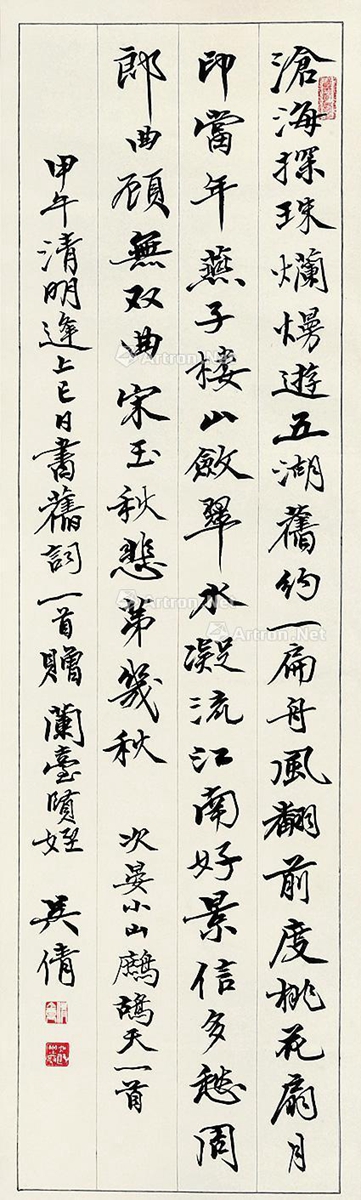 滄海探珠爛熳遊五湖舊約一扁舟風翻前度桃花扇月
印當年燕子樓山斂翠水凝流江南好景信多愁周
郎曲顧無双曲宋玉秋悲弟幾秋
次晏小山鷓鴣天一首
甲午清明逢上巳日書舊詞一首贈蘭臺賢姪
吴倩
Artron.Net
Artron.Net